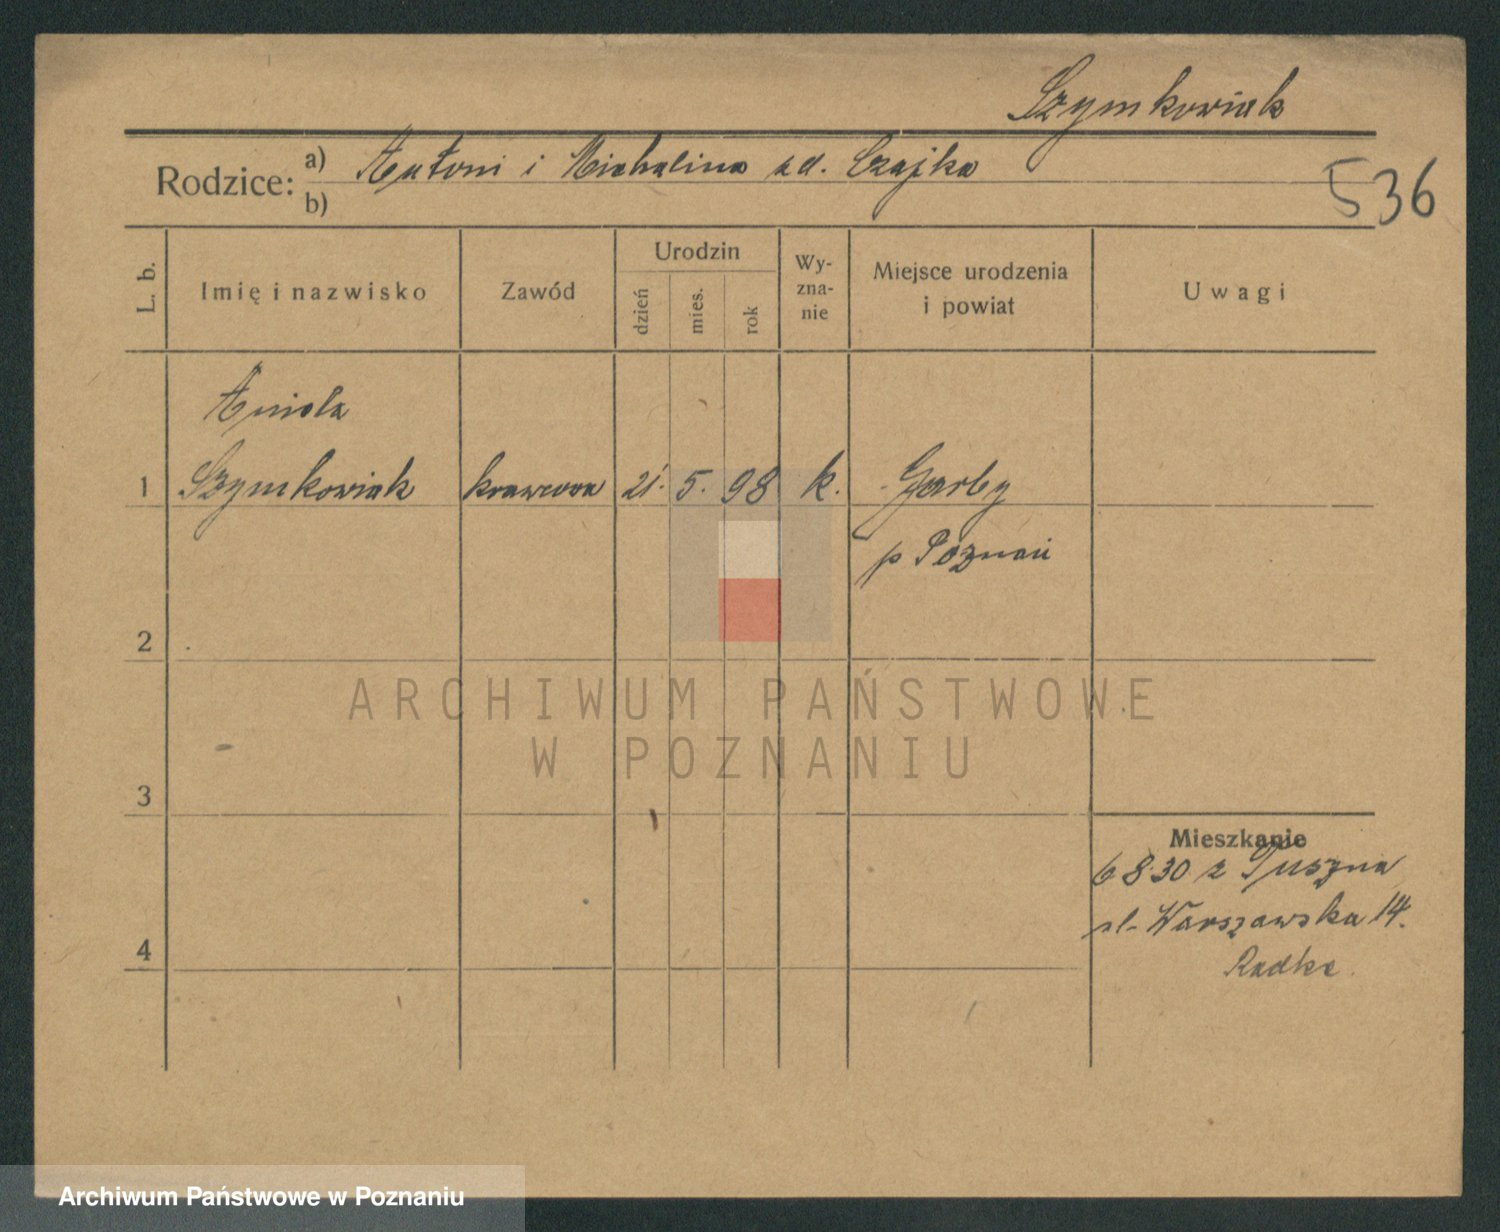 Szymkowiak
Rodzice: a) Antoni i Michalina zd. Czajka
b)
536
L. b.
Imię i nazwisko
Zawód
Urodzin
dzień
mies.
rok
Wy-
zna-
nie
Miejsce urodzenia
i powiat
Uwagi
Aniela
1 Szymkowiak krawcowa 21. 5. 98 k. Garby
p Poznań
2
ARCHIWUM PAŃSTWOWE
W POZNANIU
3
Mieszkanie
6 8.30 z
ul. Warszawska 14.
Radke
4
Archiwum Państwowe w Poznaniu